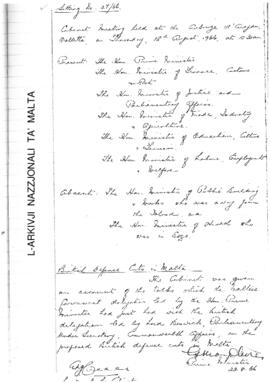 Sitting No. 27/66
Cabinet Meeting held at the Auberge d'Aragon,
Valletta, on Thursday, 18th August, 1966, at
Present: The Hon. Prime Minister
The Hon. Minister of Finance, Customs
& Port
The Hon. Minister of Justice and
Parliamentary Affairs.
The Hon. Minister of Trade, Industry
& Agriculture.
The Hon. Minister of Education, Culture
& Tourism
The Hon. Minister of Labour, Employment
& Welfare
Absent: The Hon. Minister of Public Building
& Works who was away from
the Island and
The Hon. Minister of Health who
was in Gozo.
L-ARKIVJI NAZZJONALI TA' MALTA
British Defence Cuts in Malta
The Cabinet was given
an account of the talks which the Maltese
Government delegation led by the Hon. Prime
Minister had just had with the British
delegation led by Lord Beswick, Parliamentary
Under Secretary, Commonwealth Affairs, on the
proposed British defence cuts in Malta.
Prime Minister
22.8.66